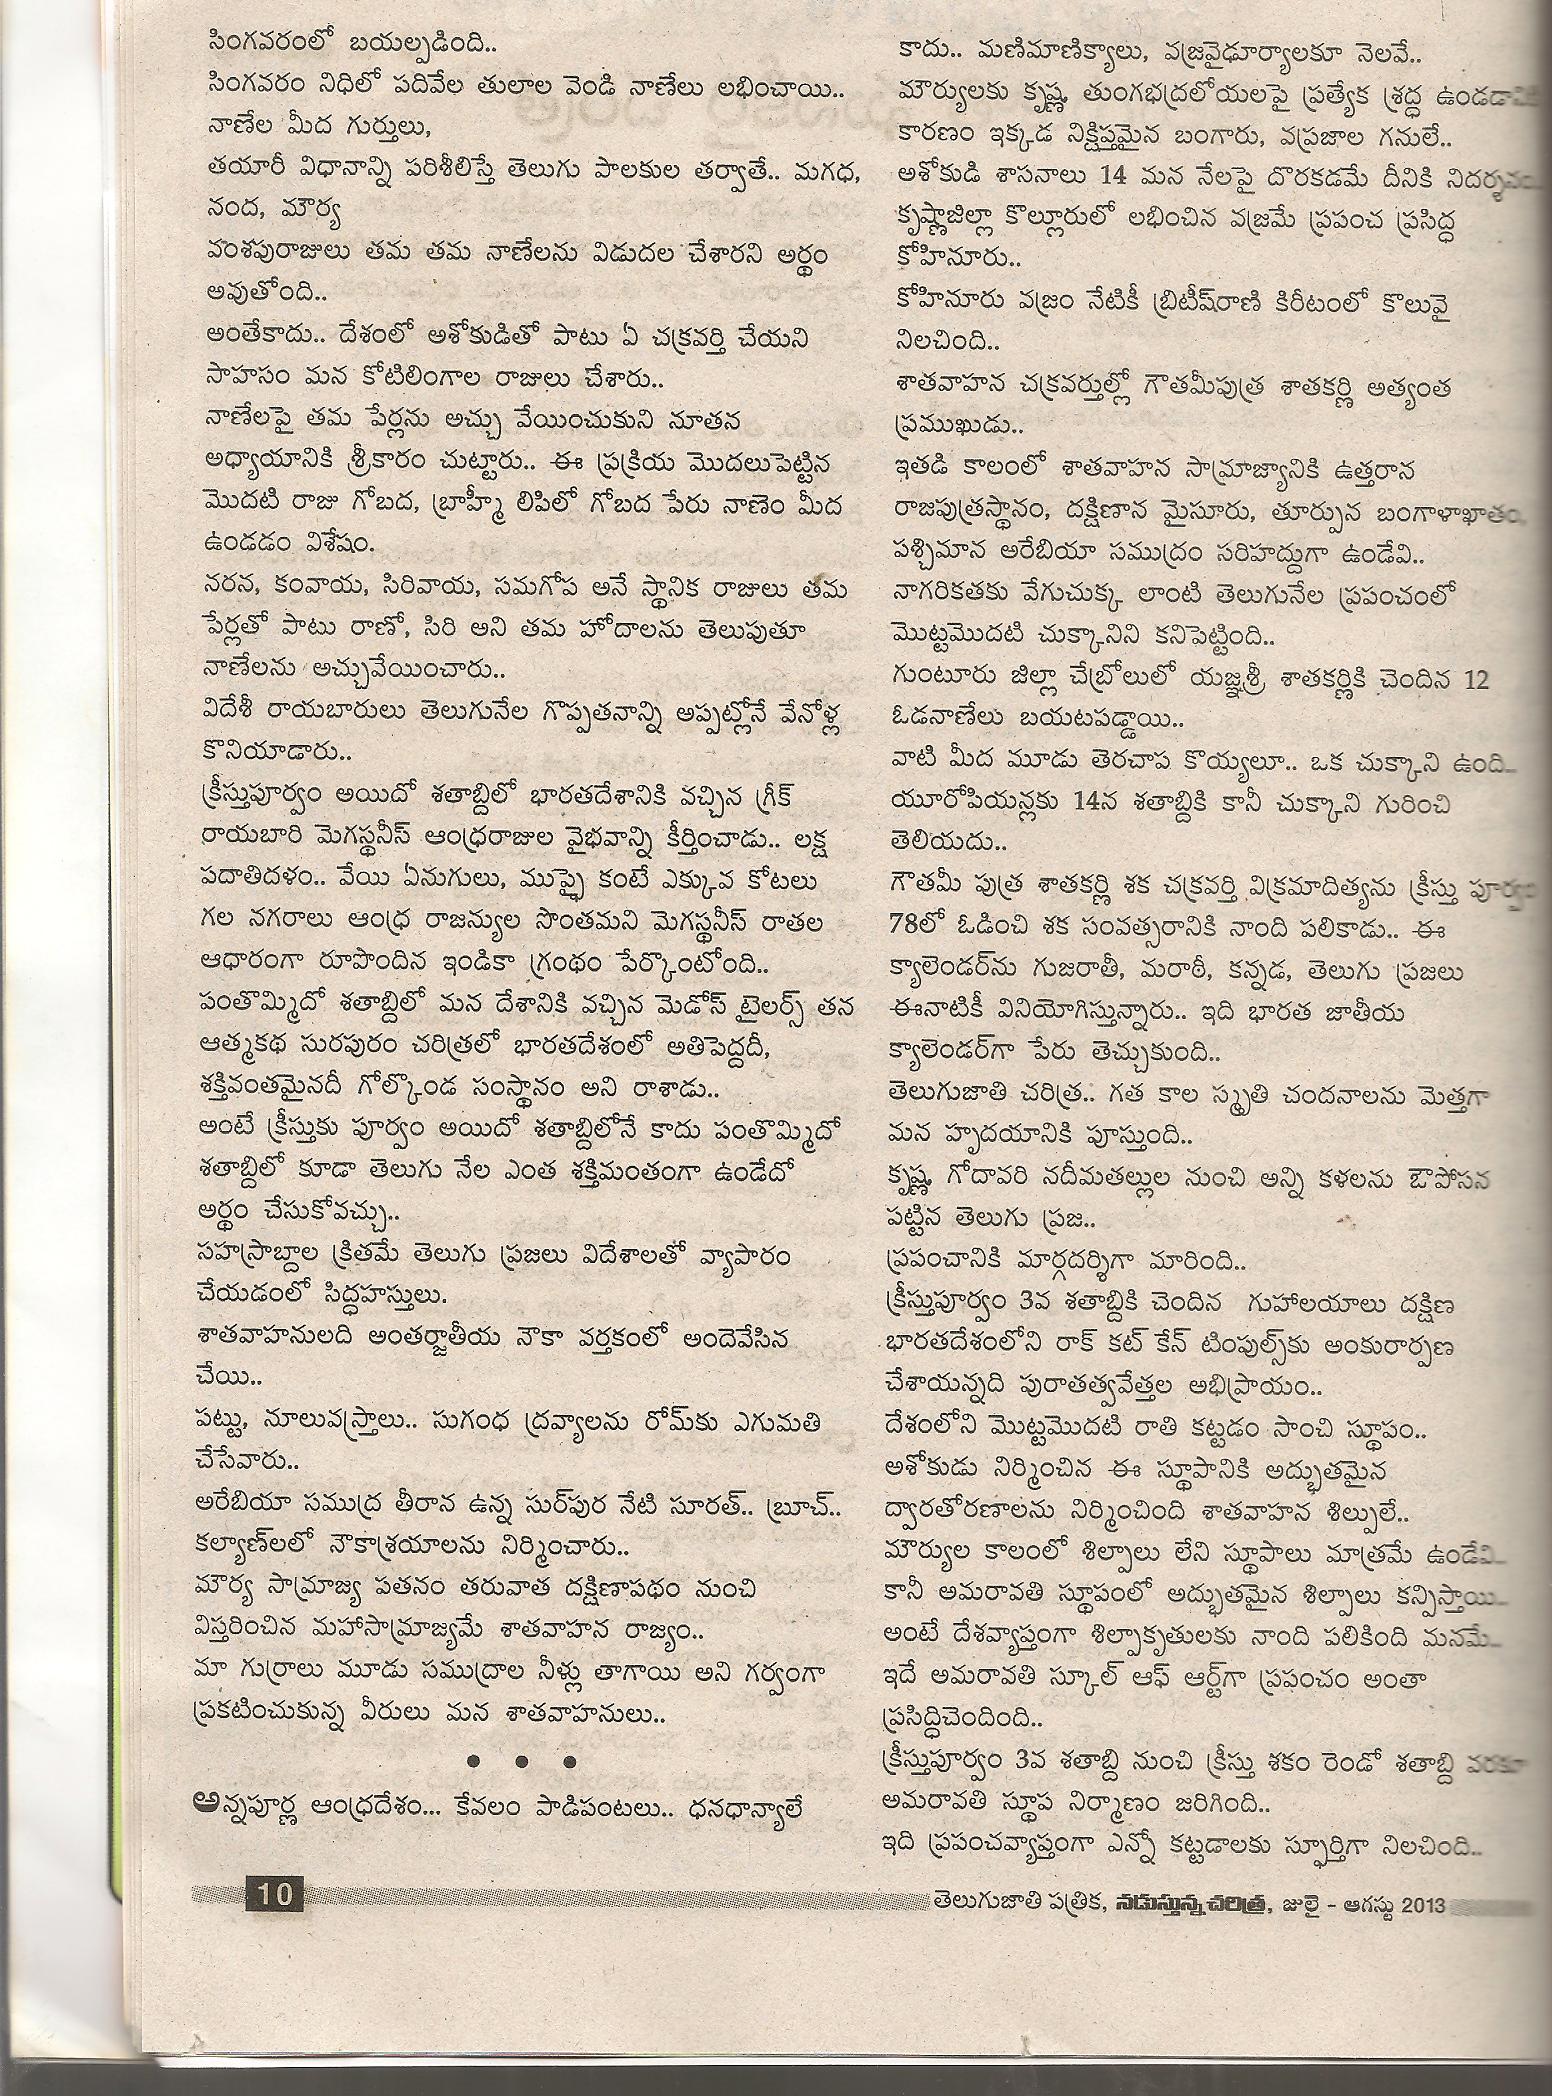 సింగవరంలో బయల్పడింది..
సింగవరం నిధిలో పదివేల తులాల వెండి నాణేలు లభించాయి..
నాణేల మీద గుర్తులు,
తయారీ విధానాన్ని పరిశీలిస్తే తెలుగు పాలకుల తర్వాతే.. మగధ,
నంద, మౌర్య
వంశపురాజులు తమ తమ నాణేలను విడుదల చేశారని అర్థం
అవుతోంది..
అంతేకాదు.. దేశంలో అశోకుడితో పాటు ఏ చక్రవర్తి చేయని
సాహసం మన కోటిలింగాల రాజులు చేశారు..
నాణేలపై తమ పేర్లను అచ్చు వేయించుకుని నూతన
అధ్యాయానికి శ్రీకారం చుట్టారు.. ఈ ప్రక్రియ మొదలుపెట్టిన
మొదటి రాజు గోబద, బ్రాహ్మీ లిపిలో గోబద పేరు నాణెం మీద
ఉండడం విశేషం.
నరన, కంవాయ, సిరివాయ, సమగోప అనే స్థానిక రాజులు తమ
పేర్లతో పాటు రాణో, సిరి అని తమ హోదాలను తెలుపుతూ
నాణేలను అచ్చువేయించారు..
విదేశీ రాయబారులు తెలుగునేల గొప్పతనాన్ని అప్పట్లోనే వేనోళ్ల
కొనియాడారు..
క్రీస్తుపూర్వం అయిదో శతాబ్దిలో భారతదేశానికి వచ్చిన గ్రీక్
రాయబారి మెగస్థనీస్ ఆంధ్రరాజుల వైభవాన్ని కీర్తించాడు.. లక్ష
పదాతిదళం.. వేయి ఏనుగులు, ముప్ఫై కంటే ఎక్కువ కోటలు
గల నగరాలు ఆంధ్ర రాజన్యుల సొంతమని మెగస్థనీస్ రాతల
ఆధారంగా రూపొందిన ఇండికా గ్రంథం పేర్కొంటోంది..
పంతొమ్మిదో శతాబ్దిలో మన దేశానికి వచ్చిన మెడోస్ టైలర్స్ తన
ఆత్మకథ సురపురం చరిత్రలో భారతదేశంలో అతిపెద్దదీ,
శక్తివంతమైనదీ గోల్కొండ సంస్థానం అని రాశాడు..
అంటే క్రీస్తుకు పూర్వం అయిదో శతాబ్దిలోనే కాదు పంతొమ్మిదో
శతాబ్దిలో కూడా తెలుగు నేల ఎంత శక్తిమంతంగా ఉండేదో
అర్థం చేసుకోవచ్చు..
సహస్రాబ్దాల క్రితమే తెలుగు ప్రజలు విదేశాలతో వ్యాపారం
చేయడంలో సిద్ధహస్తులు.
శాతవాహనులది అంతర్జాతీయ నౌకా వర్తకంలో అందెవేసిన
చేయి..
పట్టు, నూలువస్త్రాలు.. సుగంధ ద్రవ్యాలను రోమ్‌కు ఎగుమతి
చేసేవారు..
అరేబియా సముద్ర తీరాన ఉన్న సుర్‌పుర నేటి సూరత్.. బ్రూచ్..
కల్యాణ్‌లలో నౌకాశ్రయాలను నిర్మించారు..
మౌర్య సామ్రాజ్య పతనం తరువాత దక్షిణాపథం నుంచి
విస్తరించిన మహాసామ్రాజ్యమే శాతవాహన రాజ్యం..
మా గుర్రాలు మూడు సముద్రాల నీళ్లు తాగాయి అని గర్వంగా
ప్రకటించుకున్న వీరులు మన శాతవాహనులు..
• • •
అన్నపూర్ణ ఆంధ్రదేశం... కేవలం పాడిపంటలు.. ధనధాన్యాలే
కాదు.. మణిమాణిక్యాలు, వజ్రవైఢూర్యాలకూ నెలవే..
మౌర్యులకు కృష్ణ, తుంగభద్రలోయలపై ప్రత్యేక శ్రద్ధ ఉండడానికి
కారణం ఇక్కడ నిక్షిప్తమైన బంగారు, వప్రజాల గనులే..
అశోకుడి శాసనాలు 14 మన నేలపై దొరకడమే దీనికి నిదర్శనం..
కృష్ణాజిల్లా కొల్లూరులో లభించిన వజ్రమే ప్రపంచ ప్రసిద్ధ
కోహినూరు..
కోహినూరు వజ్రం నేటికీ బ్రిటీష్‌రాణి కిరీటంలో కొలువై
నిలచింది..
శాతవాహన చక్రవర్తుల్లో గౌతమీపుత్ర శాతకర్ణి అత్యంత
ప్రముఖుడు..
ఇతడి కాలంలో శాతవాహన సామ్రాజ్యానికి ఉత్తరాన
రాజపుత్రస్థానం, దక్షిణాన మైసూరు, తూర్పున బంగాళాఖాతం,
పశ్చిమాన అరేబియా సముద్రం సరిహద్దుగా ఉండేవి..
నాగరికతకు వేగుచుక్క లాంటి తెలుగునేల ప్రపంచంలో
మొట్టమొదటి చుక్కానిని కనిపెట్టింది..
గుంటూరు జిల్లా చేబ్రోలులో యజ్ఞశ్రీ శాతకర్ణికి చెందిన 12
ఓడనాణేలు బయటపడ్డాయి..
వాటి మీద మూడు తెరచాప కొయ్యలూ.. ఒక చుక్కాని ఉంది..
యూరోపియన్లకు 14న శతాబ్దికి కానీ చుక్కాని గురించి
తెలియదు..
గౌతమీ పుత్ర శాతకర్ణి శక చక్రవర్తి విక్రమాదిత్యను క్రీస్తు పూర్వం
78లో ఓడించి శక సంవత్సరానికి నాంది పలికాడు.. ఈ
క్యాలెండర్‌ను గుజరాతీ, మరాఠీ, కన్నడ, తెలుగు ప్రజలు
ఈనాటికీ వినియోగిస్తున్నారు.. ఇది భారత జాతీయ
క్యాలెండర్‌గా పేరు తెచ్చుకుంది..
తెలుగుజాతి చరిత్ర.. గత కాల స్మృతి చందనాలను మెత్తగా
మన హృదయానికి పూస్తుంది..
కృష్ణ, గోదావరి నదీమతల్లుల నుంచి అన్ని కళలను ఔపోసన
పట్టిన తెలుగు ప్రజ..
ప్రపంచానికి మార్గదర్శిగా మారింది..
క్రీస్తుపూర్వం 3వ శతాబ్దికి చెందిన గుహాలయాలు దక్షిణ
భారతదేశంలోని రాక్ కట్ కేన్ టింపుల్స్‌కు అంకురార్పణ
చేశాయన్నది పురాతత్వవేత్తల అభిప్రాయం..
దేశంలోని మొట్టమొదటి రాతి కట్టడం సాంచి స్థూపం..
అశోకుడు నిర్మించిన ఈ స్థూపానికి అద్భుతమైన
ద్వారతోరణాలను నిర్మించింది శాతవాహన శిల్పులే..
మౌర్యుల కాలంలో శిల్పాలు లేని స్థూపాలు మాత్రమే ఉండేవి..
కానీ అమరావతి స్థూపంలో అద్భుతమైన శిల్పాలు కన్పిస్తాయి..
అంటే దేశవ్యాప్తంగా శిల్పాకృతులకు నాంది పలికింది మనమే..
ఇదే అమరావతి స్కూల్ ఆఫ్ ఆర్ట్‌గా ప్రపంచం అంతా
ప్రసిద్ధిచెందింది..
క్రీస్తుపూర్వం 3వ శతాబ్ది నుంచి క్రీస్తు శకం రెండో శతాబ్ది వరకూ
అమరావతి స్థూప నిర్మాణం జరిగింది..
ఇది ప్రపంచవ్యాప్తంగా ఎన్నో కట్టడాలకు స్ఫూర్తిగా నిలచింది..
10
తెలుగుజాతి పత్రిక, నడుస్తున్నచరిత్ర, జులై - ఆగస్టు 2013